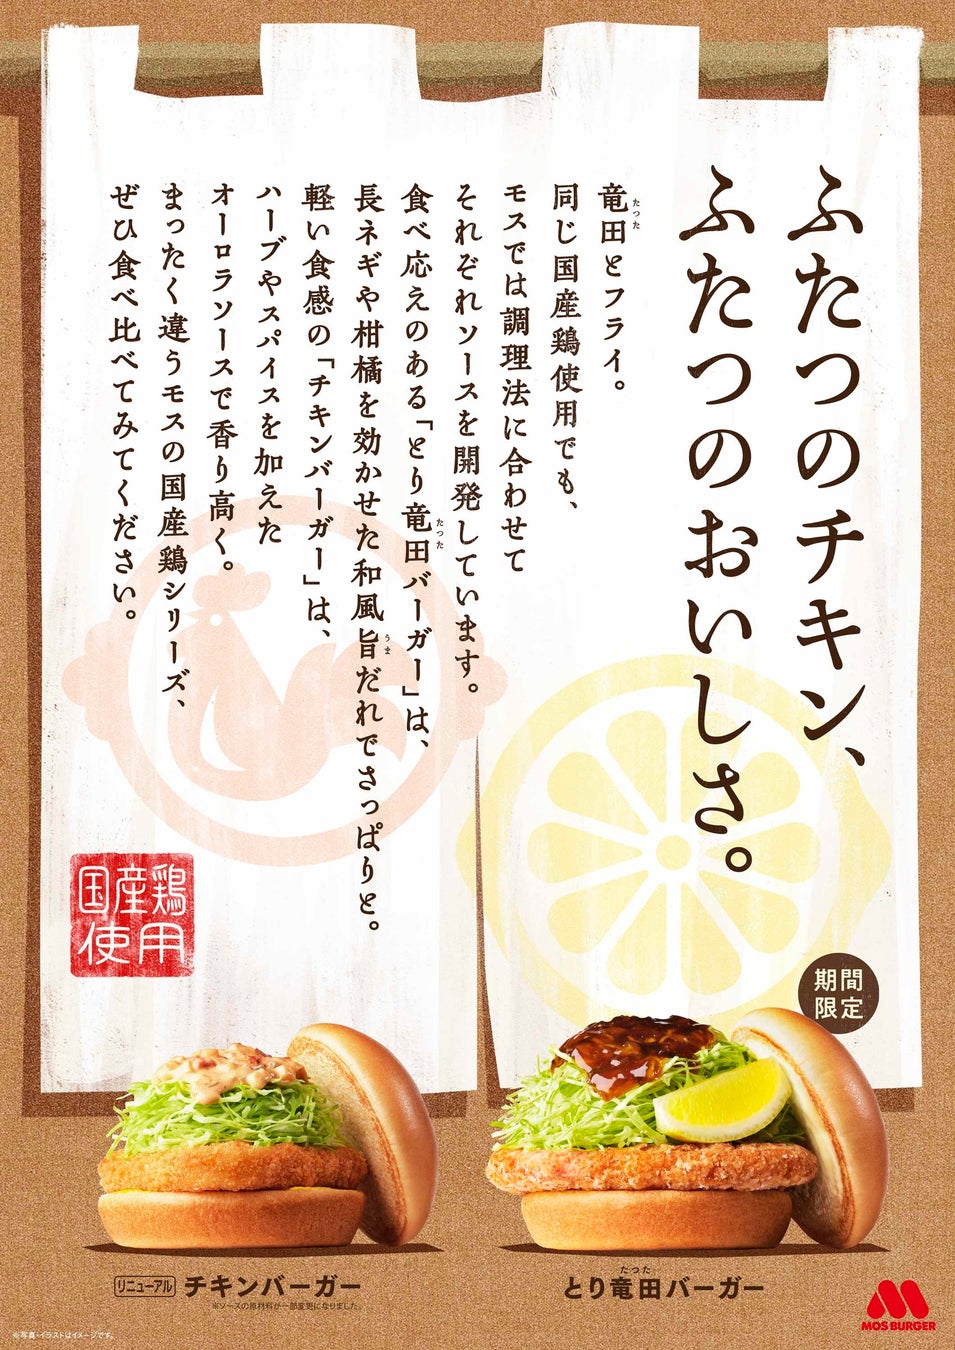 ふたつのチキン、
ふたつのおいしさ。
竜田とフライ。
たった
同じ国産鶏使用でも、
モスでは調理法に合わせて
それぞれソースを開発しています。
食べ応えのある「とり竜田バーガー」は、
たった
長ネギや柑橘を効かせた和風旨だれでさっぱりと。
うま
軽い食感の「チキンバーガー」は、
ハーブやスパイスを加えた
オーロラソースで香り高く。
まったく違うモスの国産鶏シリーズ、
ぜひ食べ比べてみてください。
国産鶏
使用
期間
限定
リニューアル チキンバーガー
※ソースの原材料が一部変更になりました。
たつた
とり竜田バーガー
MOS BURGER
※写真・イラストはイメージです。